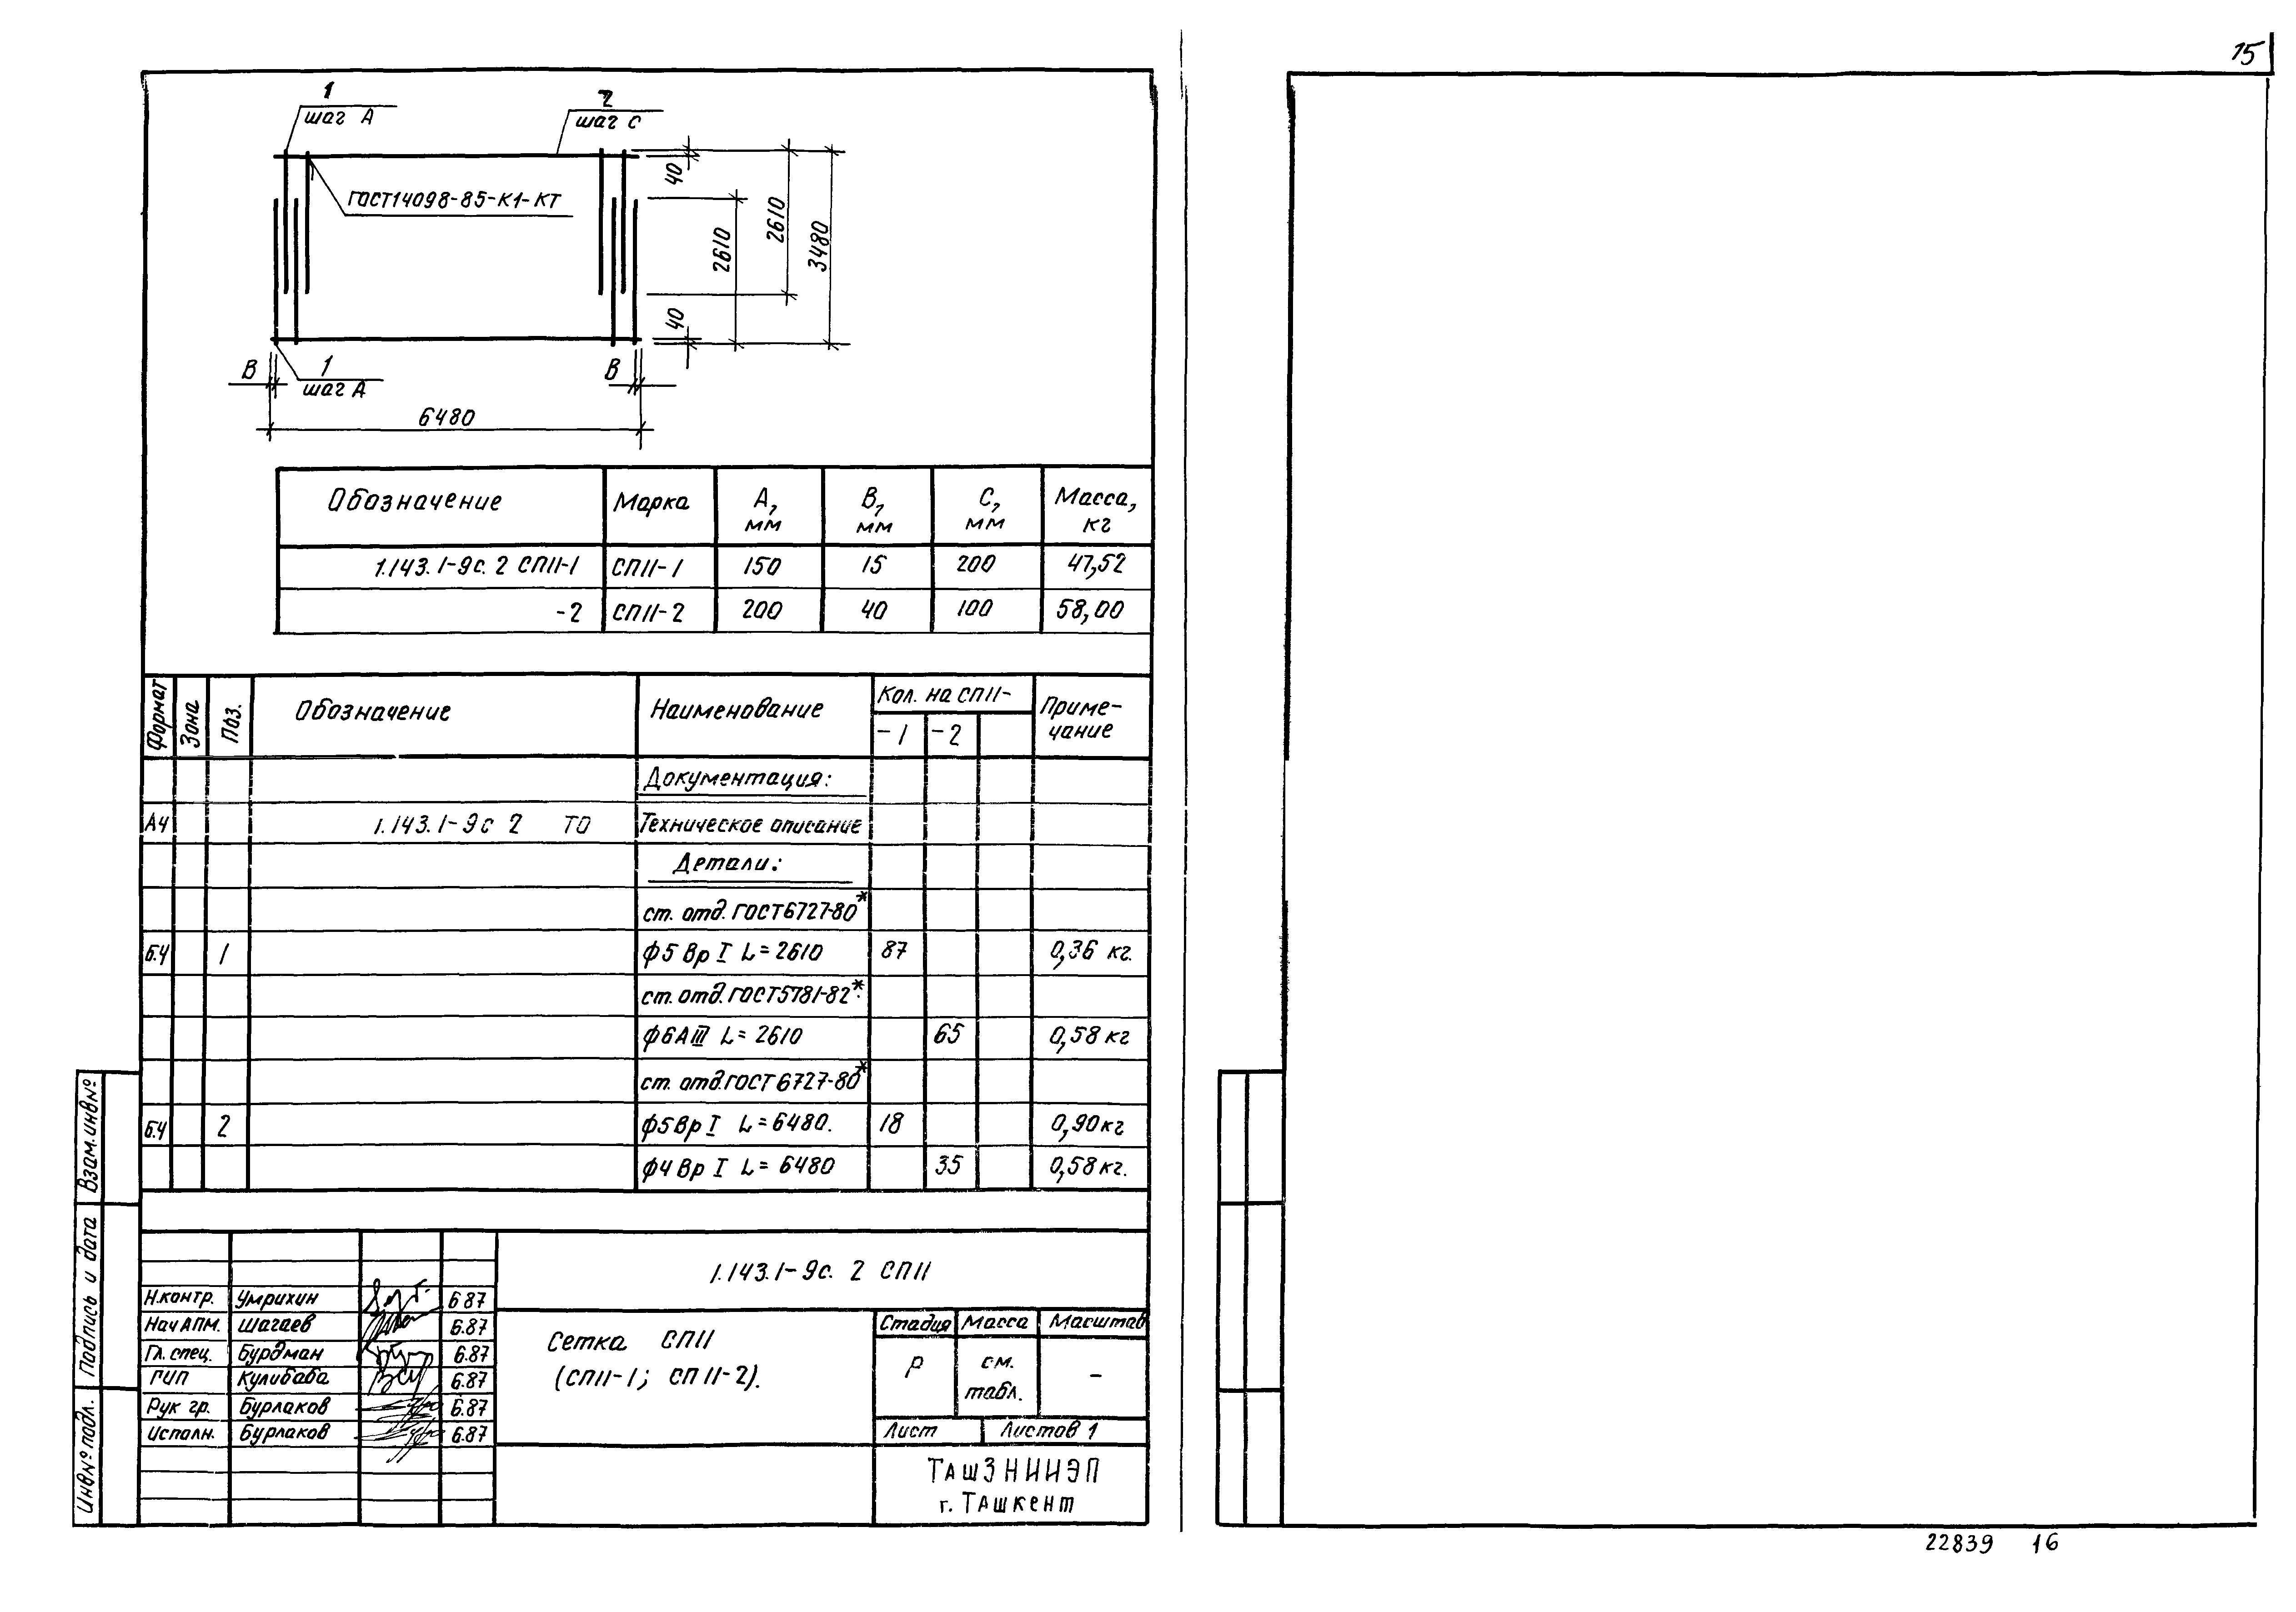 15
1
шаг А
2
шаг С
ГОСТ14098-85-К1-КТ
40
2610
2610
3480
40
В
1
шаг А
В
6480
Обозначение Марка А, мм В, мм С, мм Масса, кг
1.143.1-9с. 2 СП11-1 СП11-1 150 15 200 47,52
-2 СП11-2 200 40 100 58,00
Формат Зона Поз. Обозначение Наименование Кол. на СП11- Приме-
-1 -2 чание
Документация:
А4 1.143.1-9с 2 ТО Техническое описание
Детали:
ст. отд. ГОСТ6727-80*
Б.Ч 1 ф5 Вр I L=2610 87 0,36 кг.
ст. отд. ГОСТ5781-82*.
ф6АIII L=2610 65 0,58 кг
ст. отд.ГОСТ6727-80*
Б.Ч 2 ф5Вр I L=6480. 18 0,90кг
ф4 Вр I L=6480 35 0,58 кг.
Взам.инв№
Подпись и дата
Инв№ подл.
1.143.1-9с. 2 СП11
Н.контр. Умрихин 6 87
Нач АПМ. Шагаев 6.87
Гл. спец. Бурдман 6.87
ГИП Кулибаба 6.87
Рук гр. Бурлаков 6.87
Исполн. Бурлаков 6.87
Сетка СП11
(СП11-1; СП11-2).
Стадия Масса Масштаб
Р см. табл. -
Лист Листов 1
ТашЗНИИЭП
г. Ташкент
22839 16